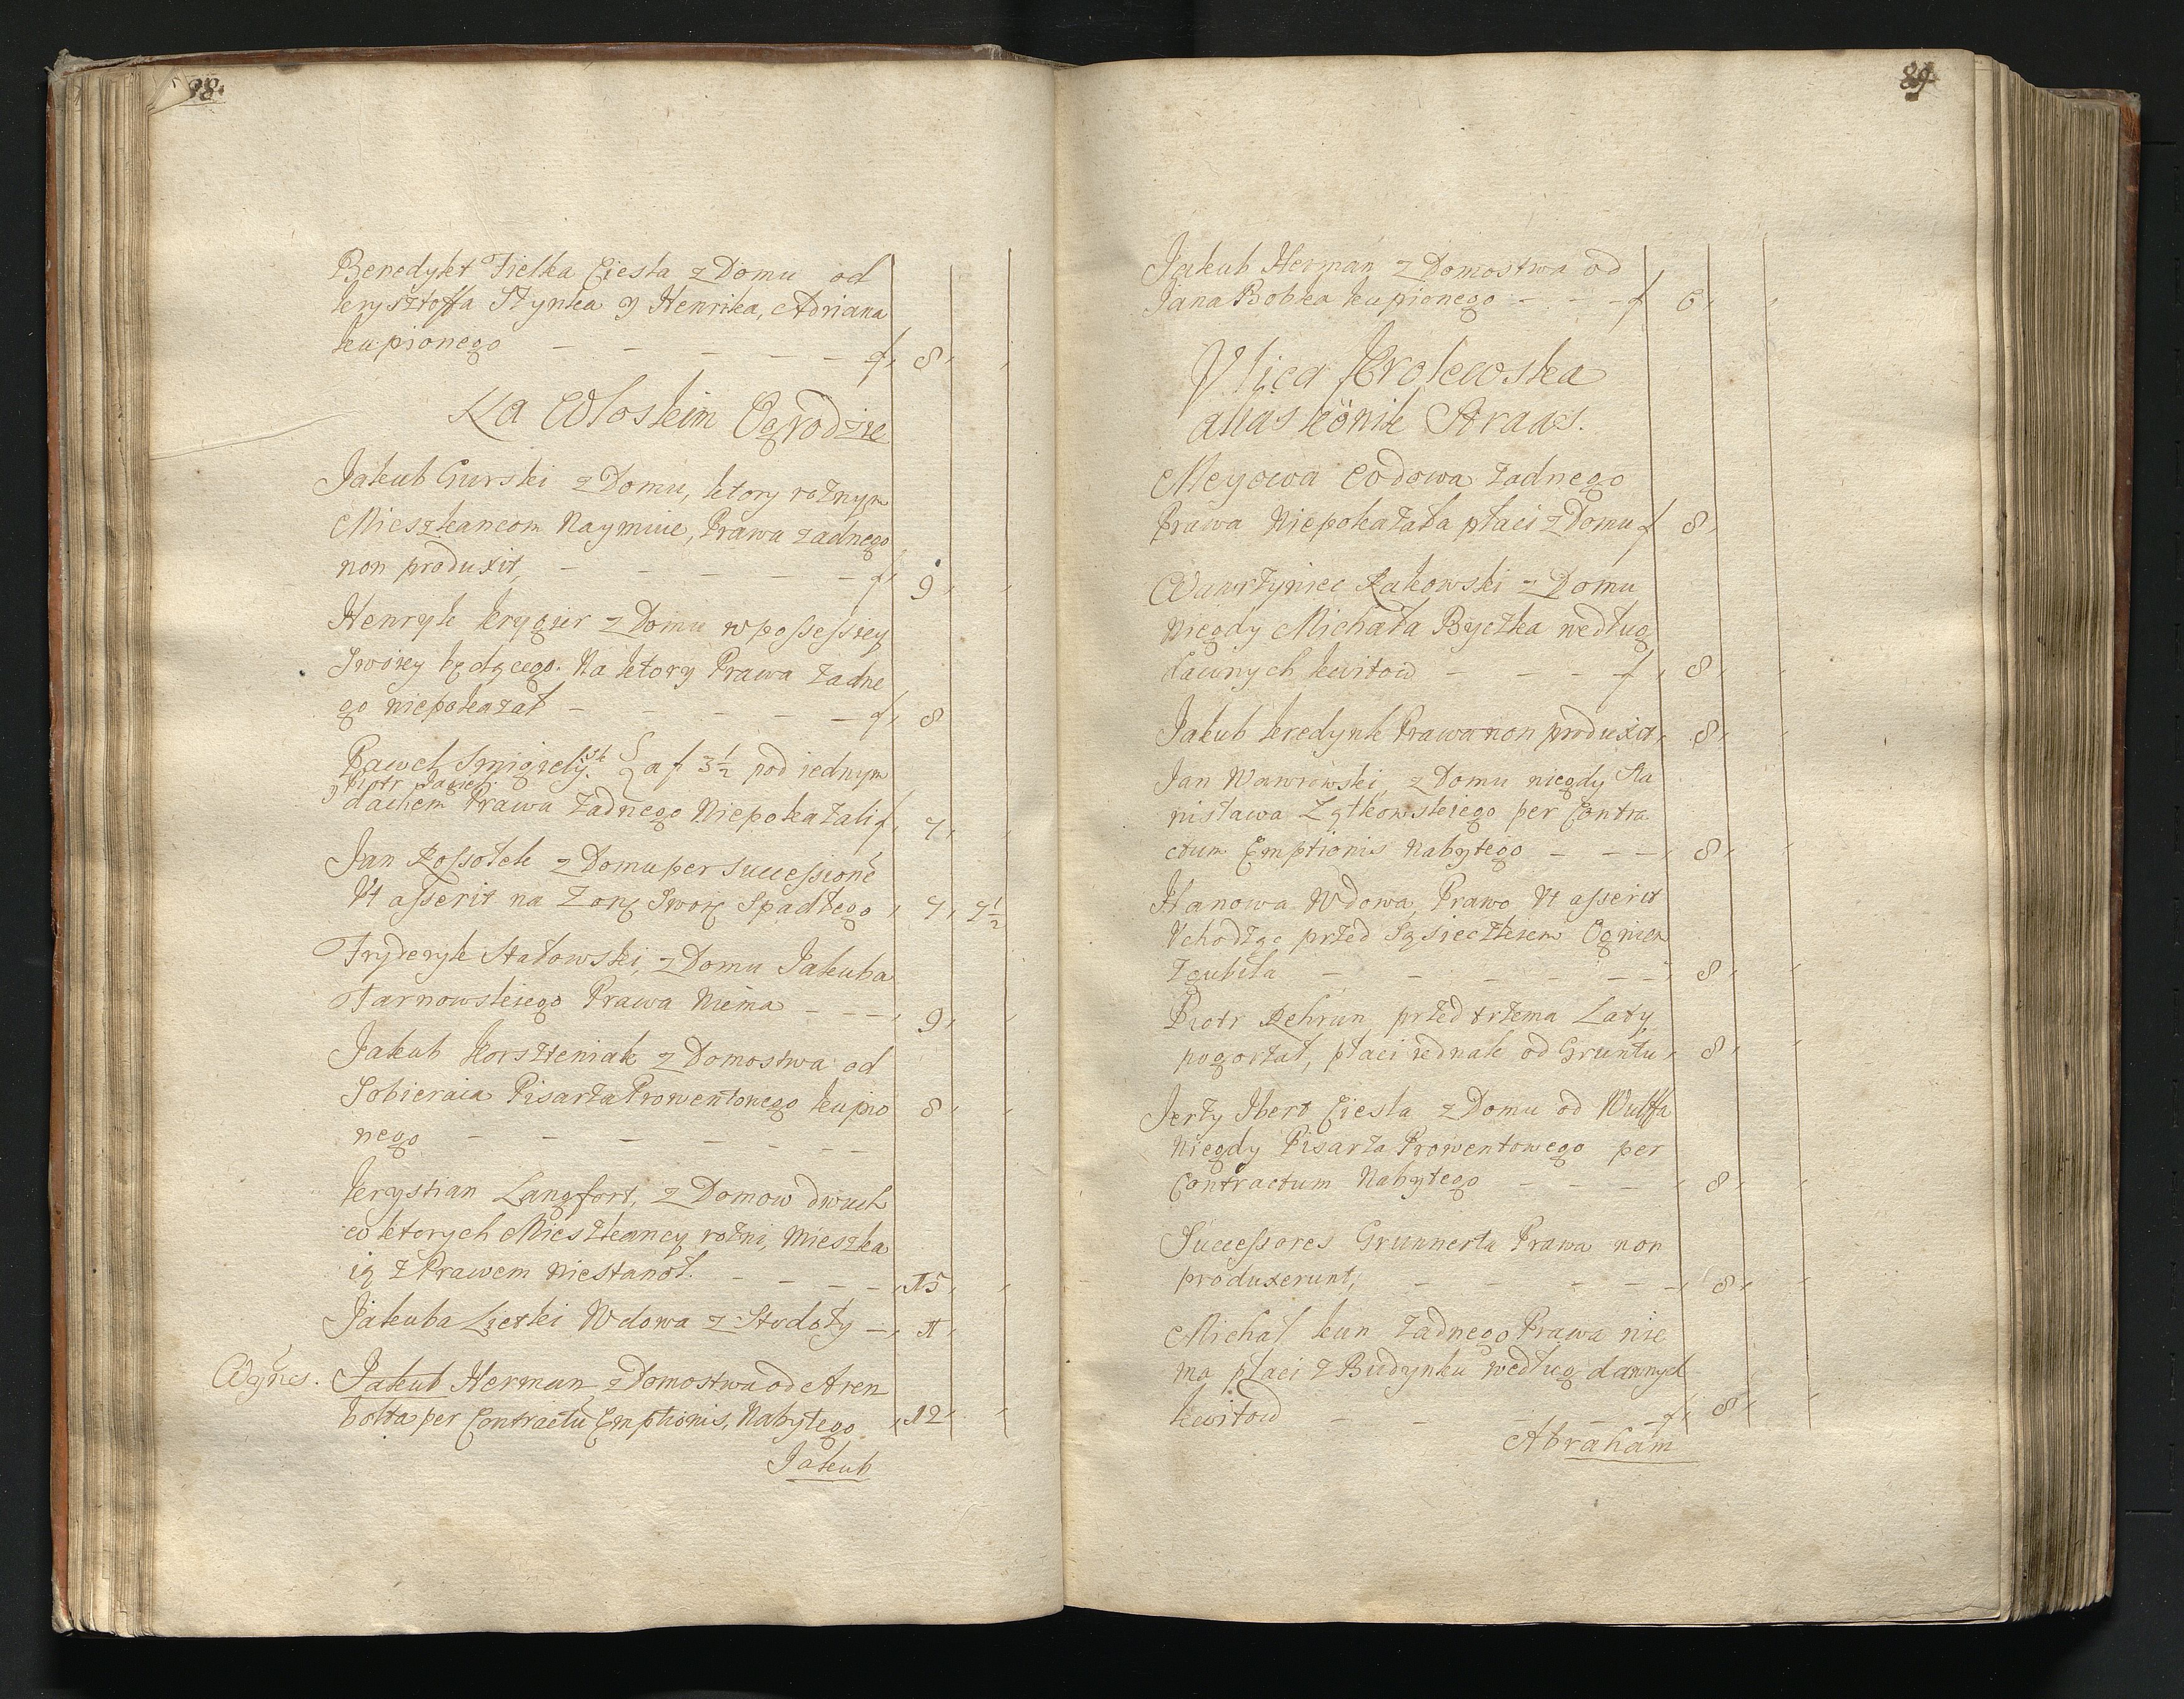 88.
Benedykt Fielka Ciesla z Domu od
krysztoffa Sztynka y Henrika, Adriana
kupionego — — — — — — f, 8,
Na Włoskim Ogrodzie
Jakub Gurski z Domu, ktory rożnym
Mieszkancom Naymuie, Prawa zadnego
non produxit, — — — — — f, 9,
Henryk krygier z Domu w possessiey
Swoiey będącego. Na ktory Prawa Żadne
go niepokazał — — — — — f, 8
Paweł Smigielsk. a f 3½ pod iednym
y Piotr
dachem Prawa Żadnego Niepokazali f, 7,
Jan Rossołek z Domu per Successionē
Vt asserit na Zonę Swoię Spadłego, 7, 7½
Fryderyk Stałowski, z Domu Jakuba
Tarnowskiego Prawa Niema — — —, 9,
Jakub Korszteniak z Domostwa od
Sobieraia Pisarza Prowentowego kupio 8,
nego — — — — — — —
krystian Langfort, z Domow dwuch
co ktorych Mieszkancy rożni, Mieszka
ią z Prawem Niestanoł. — — — —, 15,
Jakuba Lietki Wdowa z Stodoły —, 1,
Jakub Herman z Domostwa od Aren
holta per Contractū Emptionis, Nabytego, 12,
Jakub
89
Jakub Herman z Domostwa od
Jana Bobka kupionego — — — f 6,
Vlica Krolewska
alias könik Straas.
Meyowa Wdowa Żadnego
Prawa Niepokazała płaci z Domu f 8,
Wawrzyniec Rakowski z Domu
Niegdy Michała Byczka według
dawnych kwitow — — — f, 8,
Jakub kredynk Prawa non produxit, 8,
Jan Wawrowski, z Domu niegdy Sta
nisława Zątkowskiego per Contra
ctum Emptionis Nabytego — — —, 8,
Hanowa Wdowa, Prawo Vt asserit
Vchodząc przed Sąsieczkiem Ogniem
Zgubiła — — — — — —, 8,
Piotr Rehrun przed trzema Laty
pogorzał, płaci iednak od Gruntu, 8,
Jerzy Ibert Ciesla z Domu od Wulffa
Niegdy Pisarza Prowentowego per
Contractum Nabytego — — — —, 8,
Successores Grunnerta Prawa non
produxerunt, — — — — —, 8,
Michał kun Żadnego Prawa nie
ma płaci z Budynku według dawnych
kwitow — — — — f, 8,
Abraham